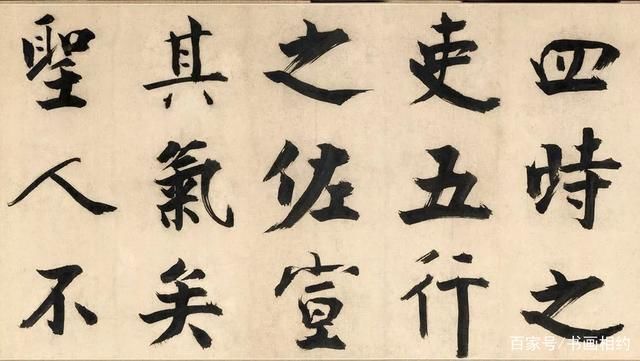 四時之
吏五行
之佐宣
其氣矣
聖人不
百家号/书画相约